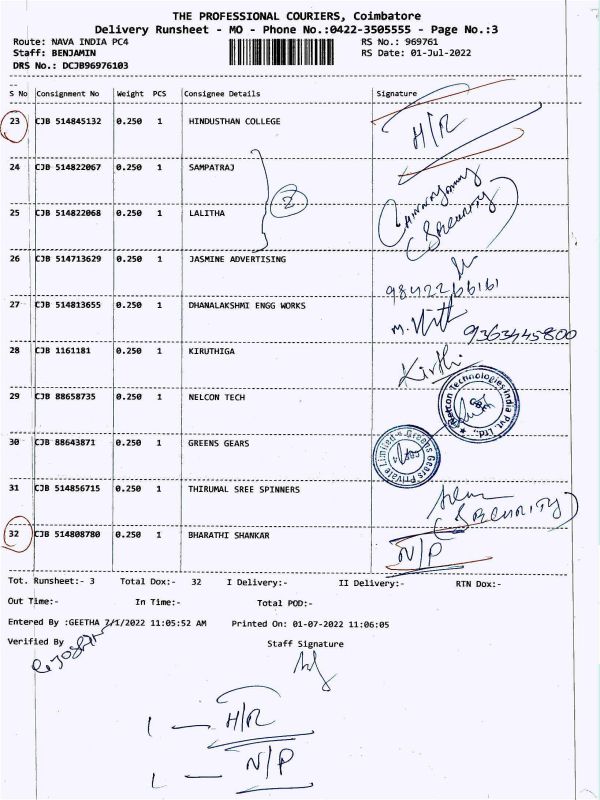 THE PROFESSIONAL COURIERS, Coimbatore
Delivery Runsheet - MO - Phone No.:0422-3505555 - Page No.:3
Route: NAVA INDIA PC4 RS No.: 969761
Staff: BENJAMIN RS Date: 01-Jul-2022
DRS No.: DCJB96976103
S No Consignment No Weight PCS Consignee Details Signature
23 CJB 514845132 0.250 1 HINDUSTHAN COLLEGE H/R
24 CJB 514822067 0.250 1 SAMPATRAJ
2
25 CJB 514822068 0.250 1 LALITHA (SECURITY)
26 CJB 514713629 0.250 1 JASMINE ADVERTISING
9842266161
27 CJB 514813655 0.250 1 DHANALAKSHMI ENGG WORKS M. 9363445800
28 CJB 1161181 0.250 1 KIRUTHIGA Kirthi
29 CJB 88658735 0.250 1 NELCON TECH Nelcon Technologies India Pvt. Ltd.
30 CJB 88643871 0.250 1 GREENS GEARS Greens Gears Private Limited
31 CJB 514856715 0.250 1 THIRUMAL SREE SPINNERS
(SECURITY)
32 CJB 514808780 0.250 1 BHARATHI SHANKAR N/P
Tot. Runsheet:- 3 Total Dox:- 32 I Delivery:- II Delivery:- RTN Dox:-
Out Time:- In Time:- Total POD:-
Entered By :GEETHA 7/1/2022 11:05:52 AM Printed On: 01-07-2022 11:06:05
Verified By Staff Signature
1 — H/R
1 — N/P